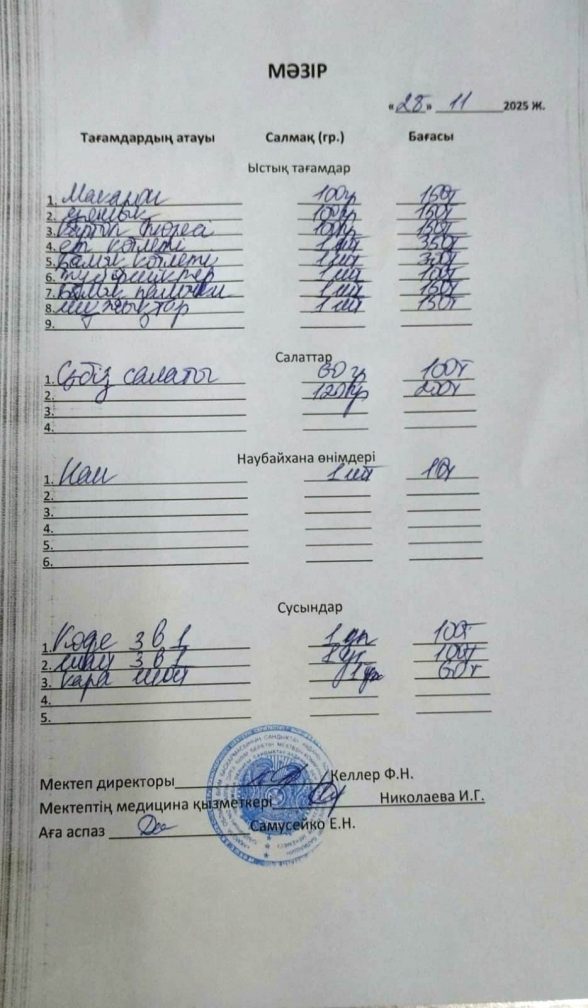 МӘЗІР
«28» 11 2025 Ж.
Тағамдардың атауы Салмақ (гр.) Бағасы
Ыстық тағамдар
1. Макарон 100гр 150т
2. 100гр 150т
3. картоп пюресі 100гр 150т
4. ет котлеті 1 шт 350т
5. балық котлеті 1 шт
6. 1 шт 100т
7. балық 1 шт 150т
8. 1 шт 150т
9.
Салаттар
1. Сәбіз салаты 60 гр 100т
2. 120гр 200т
3.
4.
Наубайхана өнімдері
1. Нан 1 шт 10т
2.
3.
4.
5.
6.
Сусындар
1. Кофе 3 в 1 100т
2. шай 3 в 1 100т
3. қара шай 60т
4.
5.
Мектеп директоры Келлер Ф.Н.
Мектептің медицина қызметкері Николаева И.Г.
Аға аспаз Самусейко Е.Н.